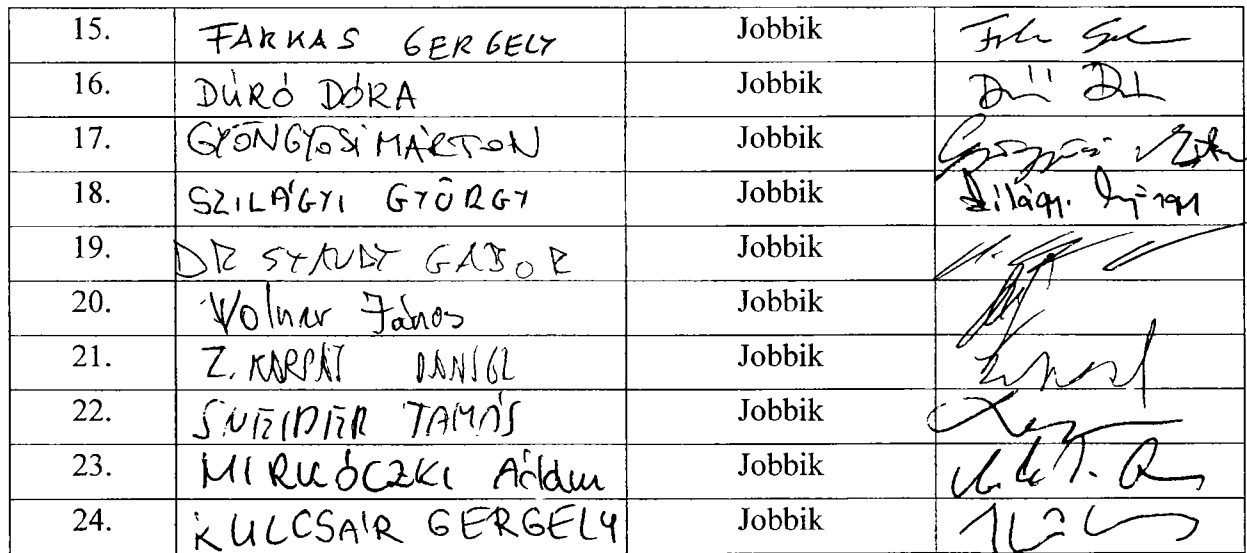 15. FARKAS GERGELY Jobbik
16. DÚRÓ DÓRA Jobbik
17. GYÖNGYÖSI MÁRTON Jobbik
18. SZILÁGYI GYÖRGY Jobbik Szilágyi György
19. DR STAUDT GÁBOR Jobbik
20. Volner János Jobbik
21. Z. KÁRPÁT DÁNIEL Jobbik
22. SNEIDER TAMÁS Jobbik
23. MIRKÓCZKI Ádám Jobbik
24. KULCSÁR GERGELY Jobbik